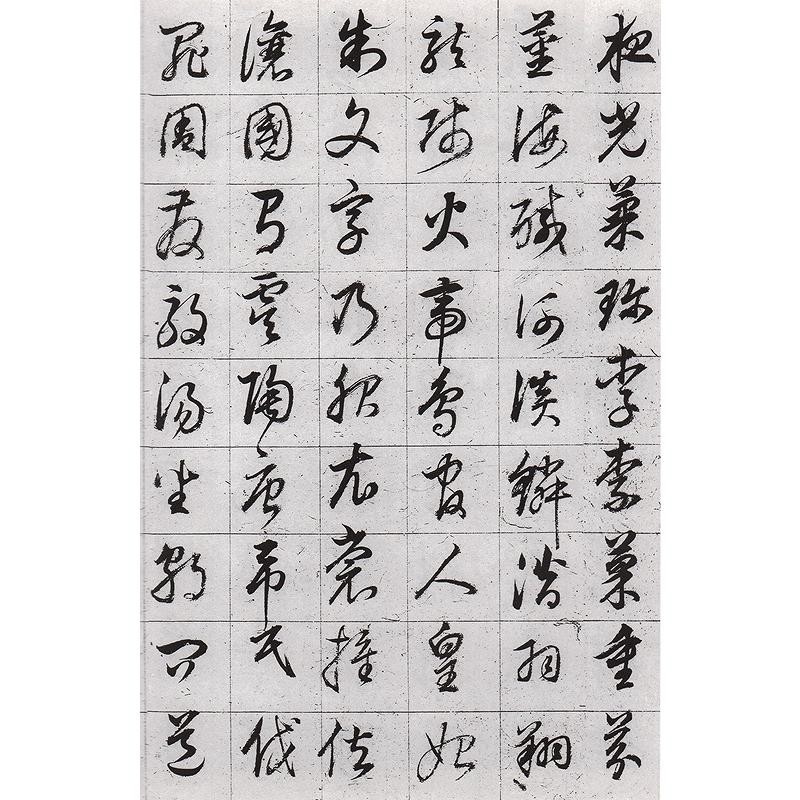 夜光菓珍李柰菜重芥
薑海鹹河淡鱗潛羽翔
龍師火帝鳥官人皇始
制文字乃服衣裳推位
讓國有虞陶唐弔民伐
罪周發殷湯坐朝問道